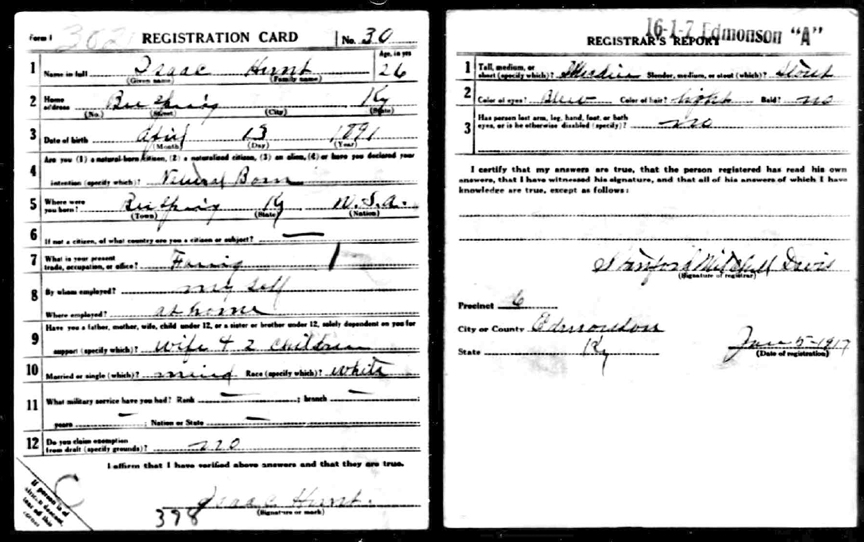 Form 1 302 REGISTRATION CARD No. 30
1 Name in full Isaac Hunt Age, in yrs 26
(Given name) (Family name)
2 Home address Bee Spring Ky
(No.) (Street) (City) (State)
3 Date of birth April 13 1891
(Month) (Day) (Year)
4 Are you (1) a natural-born citizen, (2) a naturalized citizen, (3) an alien, (4) or have you declared your
intention (specify which)? Natural Born
5 Where were you born? Bee Spring Ky U.S.A.
(Town) (State) (Nation)
6 If not a citizen, of what country are you a citizen or subject?
7 What is your present trade, occupation, or office? Farming
8 By whom employed? my self
Where employed? at home
9 Have you a father, mother, wife, child under 12, or a sister or brother under 12, solely dependent on you for
support (specify which)? Wife & 2 Children
10 Married or single (which)? Race (specify which)? White
11 What military service have you had? Rank ; branch
years ; Nation or State
12 Do you claim exemption from draft (specify grounds)? no
I affirm that I have verified above answers and that they are true.
Isaac Hunt.
(Signature or mark)
398
If person is of African descent,
C
16-1-7 Edmonson "A"
REGISTRAR'S REPORT
1 Tall, medium, or short (specify which)? Medium Slender, medium, or stout (which)? Stout
2 Color of eyes? Blue Color of hair? light Bald? no
3 Has person lost arm, leg, hand, foot, or both eyes, or is he otherwise disabled (specify)? no
I certify that my answers are true, that the person registered has read his own
answers, that I have witnessed his signature, and that all of his answers of which I have
knowledge are true, except as follows:
Stanford Mitchell Davis
(Signature of registrar)
Precinct 6
City or County Edmondson
State Ky June 5-1917
(Date of registration)